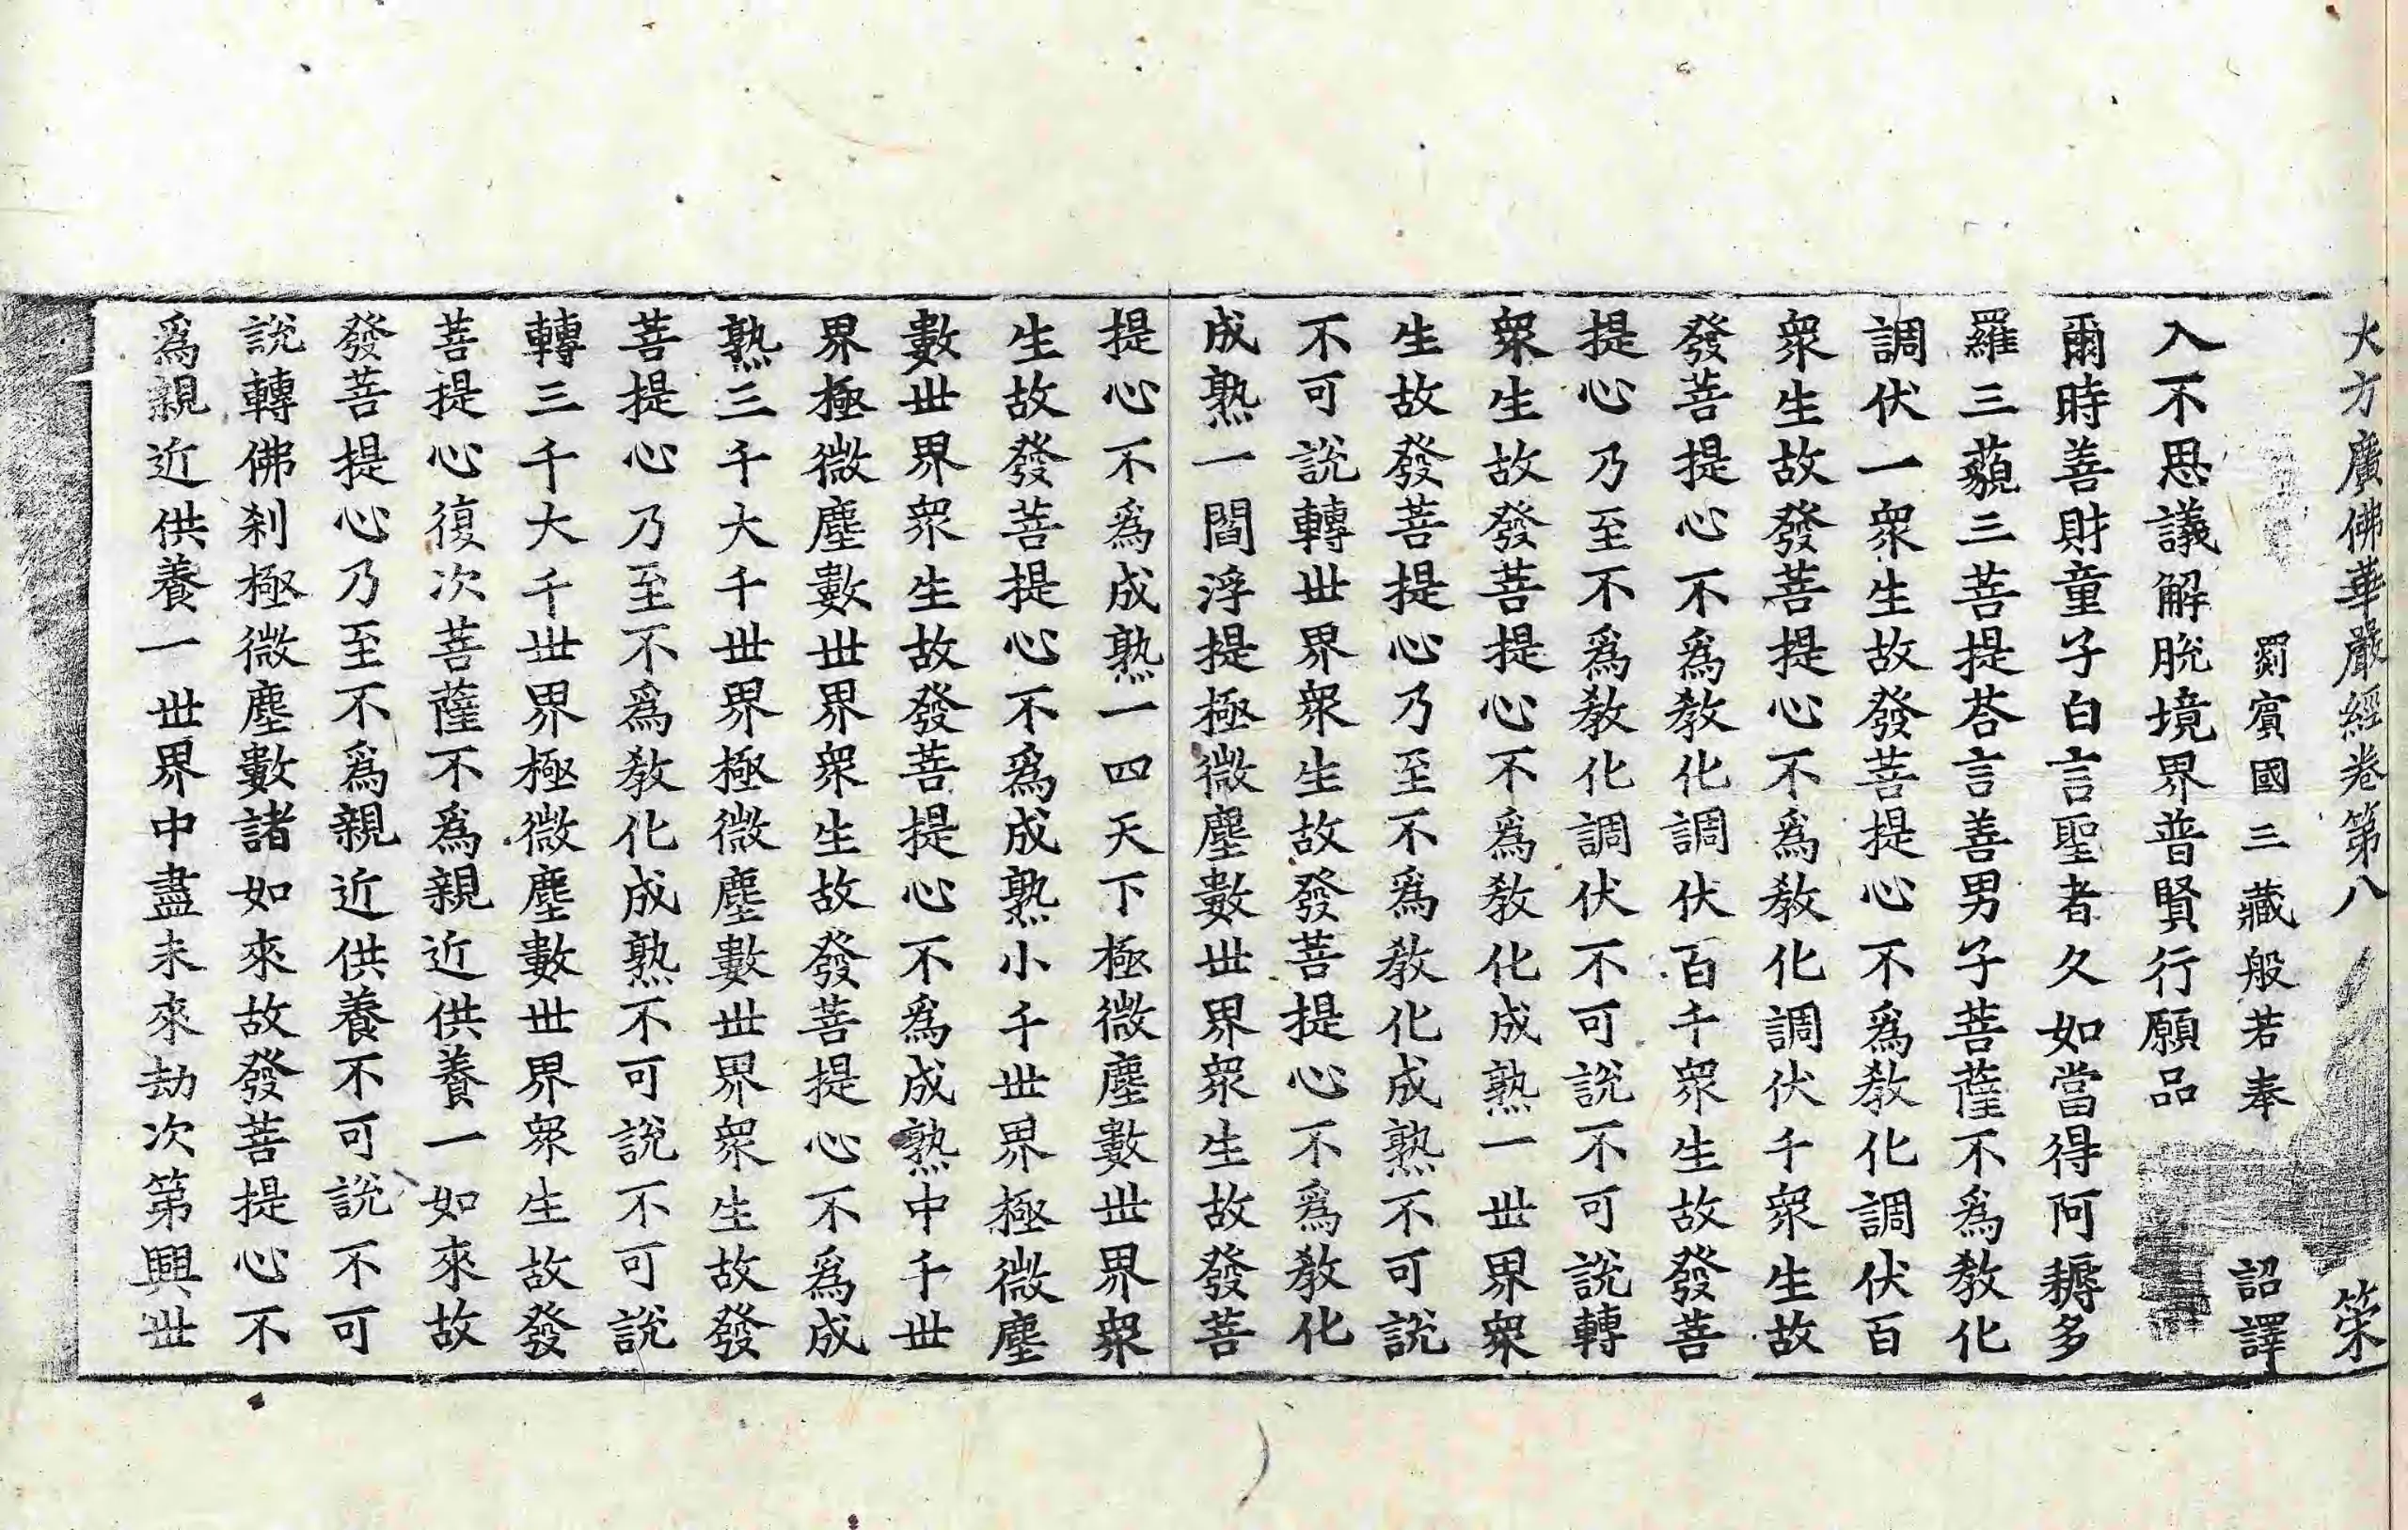 大方廣佛華嚴經卷第八 榮
罽賓國三藏般若奉 詔譯
入不思議解脫境界普賢行願品
爾時善財童子白言聖者久如當得阿耨多
羅三藐三菩提荅言善男子菩薩不爲敎化
調伏一衆生故發菩提心不爲敎化調伏百
衆生故發菩提心不爲敎化調伏千衆生故
發菩提心不爲敎化調伏百千衆生故發菩
提心乃至不爲敎化調伏不可說不可說轉
衆生故發菩提心不爲敎化成熟一世界衆
生故發菩提心乃至不爲敎化成熟不可說
不可說轉世界衆生故發菩提心不爲敎化
成熟一閻浮提極微塵數世界衆生故發菩
提心不爲成熟一四天下極微塵數世界衆
生故發菩提心不爲成熟小千世界極微塵
數世界衆生故發菩提心不爲成熟中千世
界極微塵數世界衆生故發菩提心不爲成
熟三千大千世界極微塵數世界衆生故發
菩提心乃至不爲敎化成熟不可說不可說
轉三千大千世界極微塵數世界衆生故發
菩提心復次菩薩不爲親近供養一如來故
發菩提心乃至不爲親近供養不可說不可
說轉佛刹極微塵數諸如來故發菩提心不
爲親近供養一世界中盡未來劫次第興世